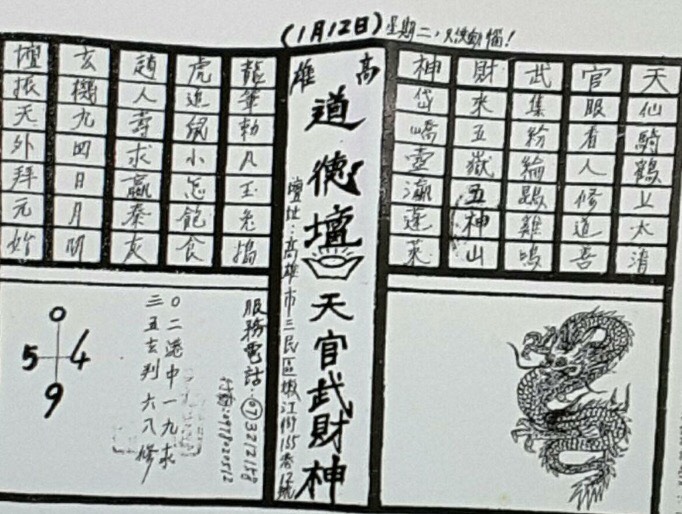 (1月12日) 星期二，動腦！
天仙騎鶴上太清
官服看人修道吾
武集紛綸雞鳴
財來五嶽五神山
神岱嶠壺瀛蓬萊
高雄
道德壇
天官武財神
壇址：高雄市三民區嫩江街155巷號
龍筆勅凡玉兔搗
虎追鼠小怎飽食
趙人壽求贏秦灰
玄機九四日月明
壇振天外拜元始
服務電話：(07)3212158
行動：0978020512
０二港中一九求
三五玄判六八修
0
5 4
9